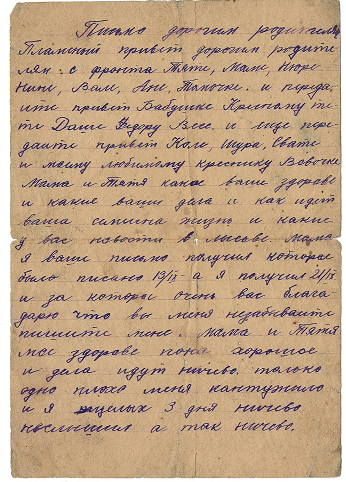 Письмо дорогим родителям
Пламенный привет дорогим родите
лям: с фронта Тяте, Маме, Нюре
Нине, Вале, Ане, Тамочке. и переда
ите привет Бабушке Крестному те
ти Даше Федору Вас. и еще пере
даите привет Коле, Шура, Свате
и моему любимому крестнику Вовочке
Мама и Тятя какое ваше здорове
и какие ваши дела и как идет
ваша жизнь и какие
у вас новости в Мама
я ваше письмо получил которое
было писано 13/IX а я получил 21/IX
и за которое очень вас блага
дарю что вы меня незабываите
пишите мене. Мама и Тятя
мое здорове пока хорошое
и дела идут ничево. только
одно плохо меня кантужило
и я целых 3 дня ничево
неслышил а так ничево.